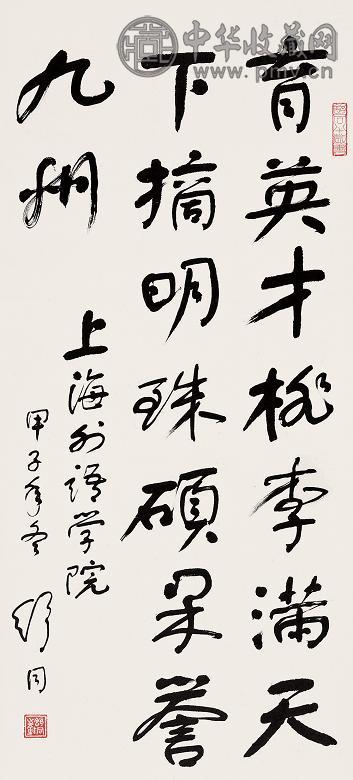 育英才桃李满天
下摘明珠硕果誉
九州
上海外语学院
甲子年冬
舒同
中华收藏网
www.pmyv.cn